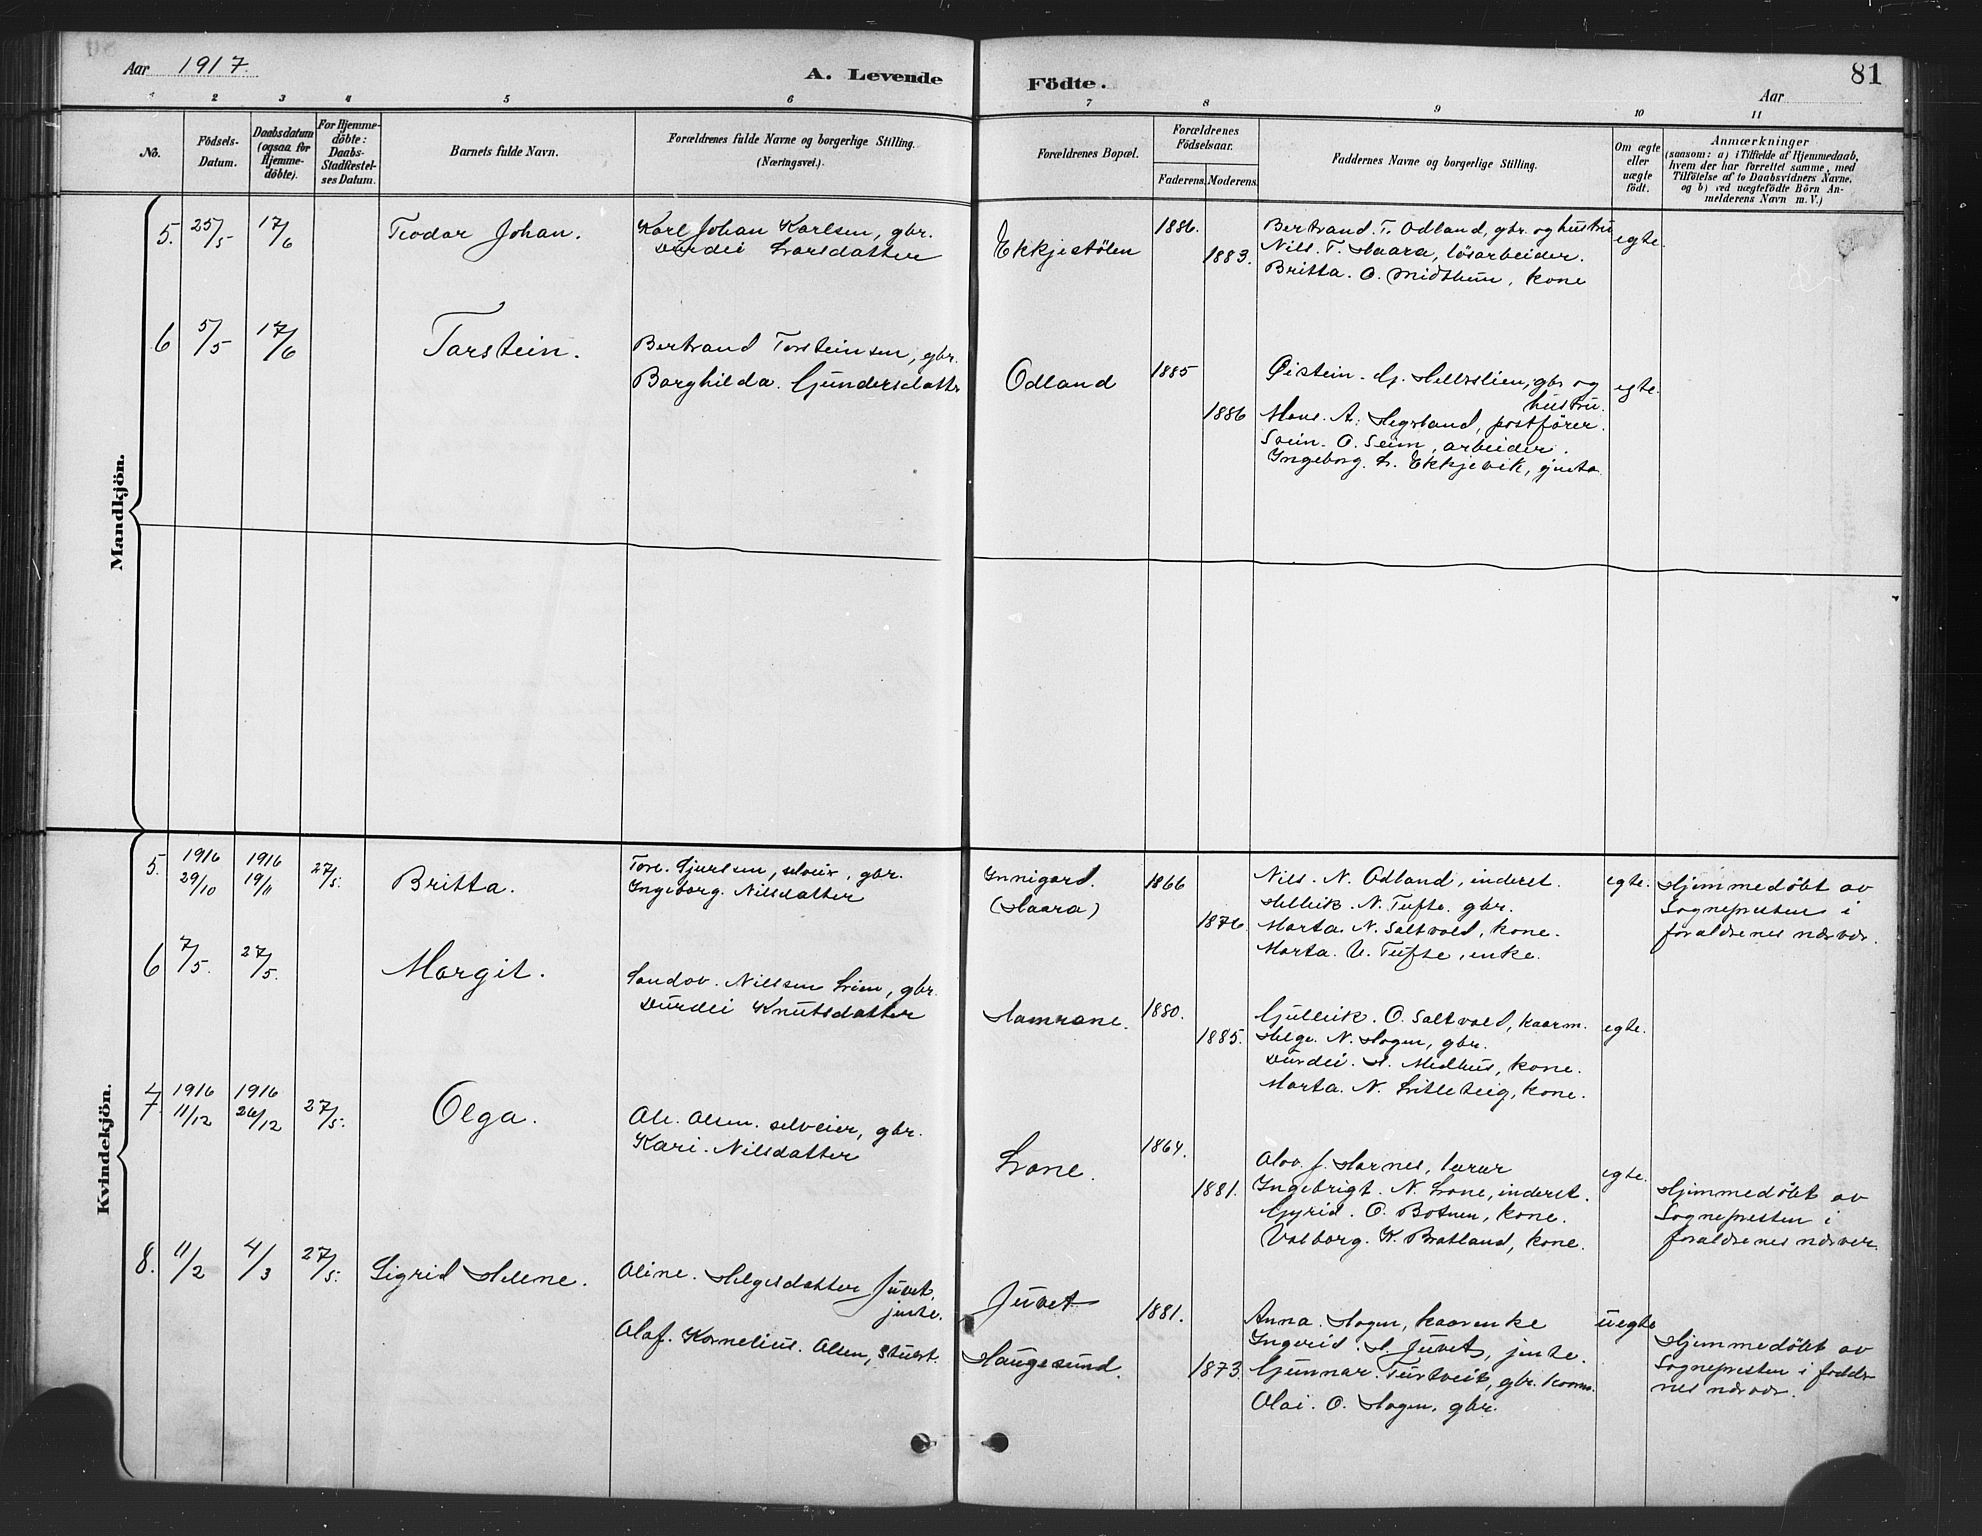 Aar 1917.
A. Levende
Födte.
81
Aar
1 2 3 4 5 6 7 8 9 10 11
No.
Födsels-Datum.
Daabsdatum (ogsaa for Hjemme-döbte).
For Hjemme-döbte: Daabs-Stadfæstel-ses Datum.
Barnets fulde Navn.
Forældrenes fulde Navne og borgerlige Stilling. (Næringsvei.)
Forældrenes Bopæl.
Forældrenes Födselsaar.
Faderens. Moderens.
Faddernes Navne og borgerlige Stilling.
Om ægte eller uægte födt.
Anmærkninger
(saasom: a) i Tilfælde af Hjemmedaab, hvem der har forrettet samme, med Tilföielse af to Daabsvidners Navne, og b) ved uægtefödte Börn Anmelderens Navn m. V.)
Mandkjön.
5. 25/5 17/6 Teodor Johan.
Karl Johan Karlsen, gbr.
Durdei Larsdatter
Ekkjestølen
1886.
1883.
Bertrand. T. Odland, gbr. og hustru
Nils. T. Haara, løsarbeider.
Britta. O. Midthun, kone
egte.
6 5/5 17/6 Torstein.
Bertrand Torsteinsen, gbr.
Borghilda. Gundersdatter
Odland
1885
1886
Øistein. G. Hellvslien, gbr og
hustru.
Hans. A. Hegrland, postfører.
Svein. O. Seim, arbeider.
Ingeborg. L. Ekkjevik, gjenta
egte.
Kvindekjön.
5. 1916 29/10 1916 19/11 27/5. Britta.
Tore. Gjurlsen, selveier, gbr.
Ingeborg. Nilsdatter
Innigard.
(Haara)
1866
1876.
Nils. N. Odland, inderst.
Hellik. N. Tufte. gbr.
Marta. N. Saltvold, kone.
Marta. V. Tufte, enke.
egte.
Hjemmedøbt av
Sognepresten i
foraldrenes nærvær.
6 7/5. 27/5. Margit.
Sandov. Nillsen Lien, gbr.
Durdei Knutsdatter
Hamrane.
1880.
1885.
Gullik. O. Saltvold, kaarm.
Helge. N. Hagen, gbr.
Durdei. H. Medhus, kone.
Marta. N. Litleteig, kone.
egte.
7 7. 1916 11/12 1916 26/12 27/5. Olga.
Ole. Olsen. selveier, gbr.
Kari. Nilsdatter
Lone.
1864.
1881.
Olav. J. Harnes, lærer
Ingebrigt. N. Lone, inderst.
Gyrid. O. Botnen, kone.
Valborg. K. Bratland, kone.
egte.
Hjemmedøbt av
Sognepresten i
foraldrenes nærver.
8. 11/2 4/3 27/5. Sigrid Helene.
Oline. Helgesdatter Juvet,
jente.
Olaf. Kornelius. Olsen, stuert.
Juvet
Haugesund.
1881.
1873.
Anna. Hagen, kaarenke
Ingerid. H. Juvet, jente.
Gunnar. Turtveit, gbr. kaarm.
Olai. O. Hagen, gbr.
uegte
Hjemmedøbt av
Sognepresten i faddr
nes nærvær.